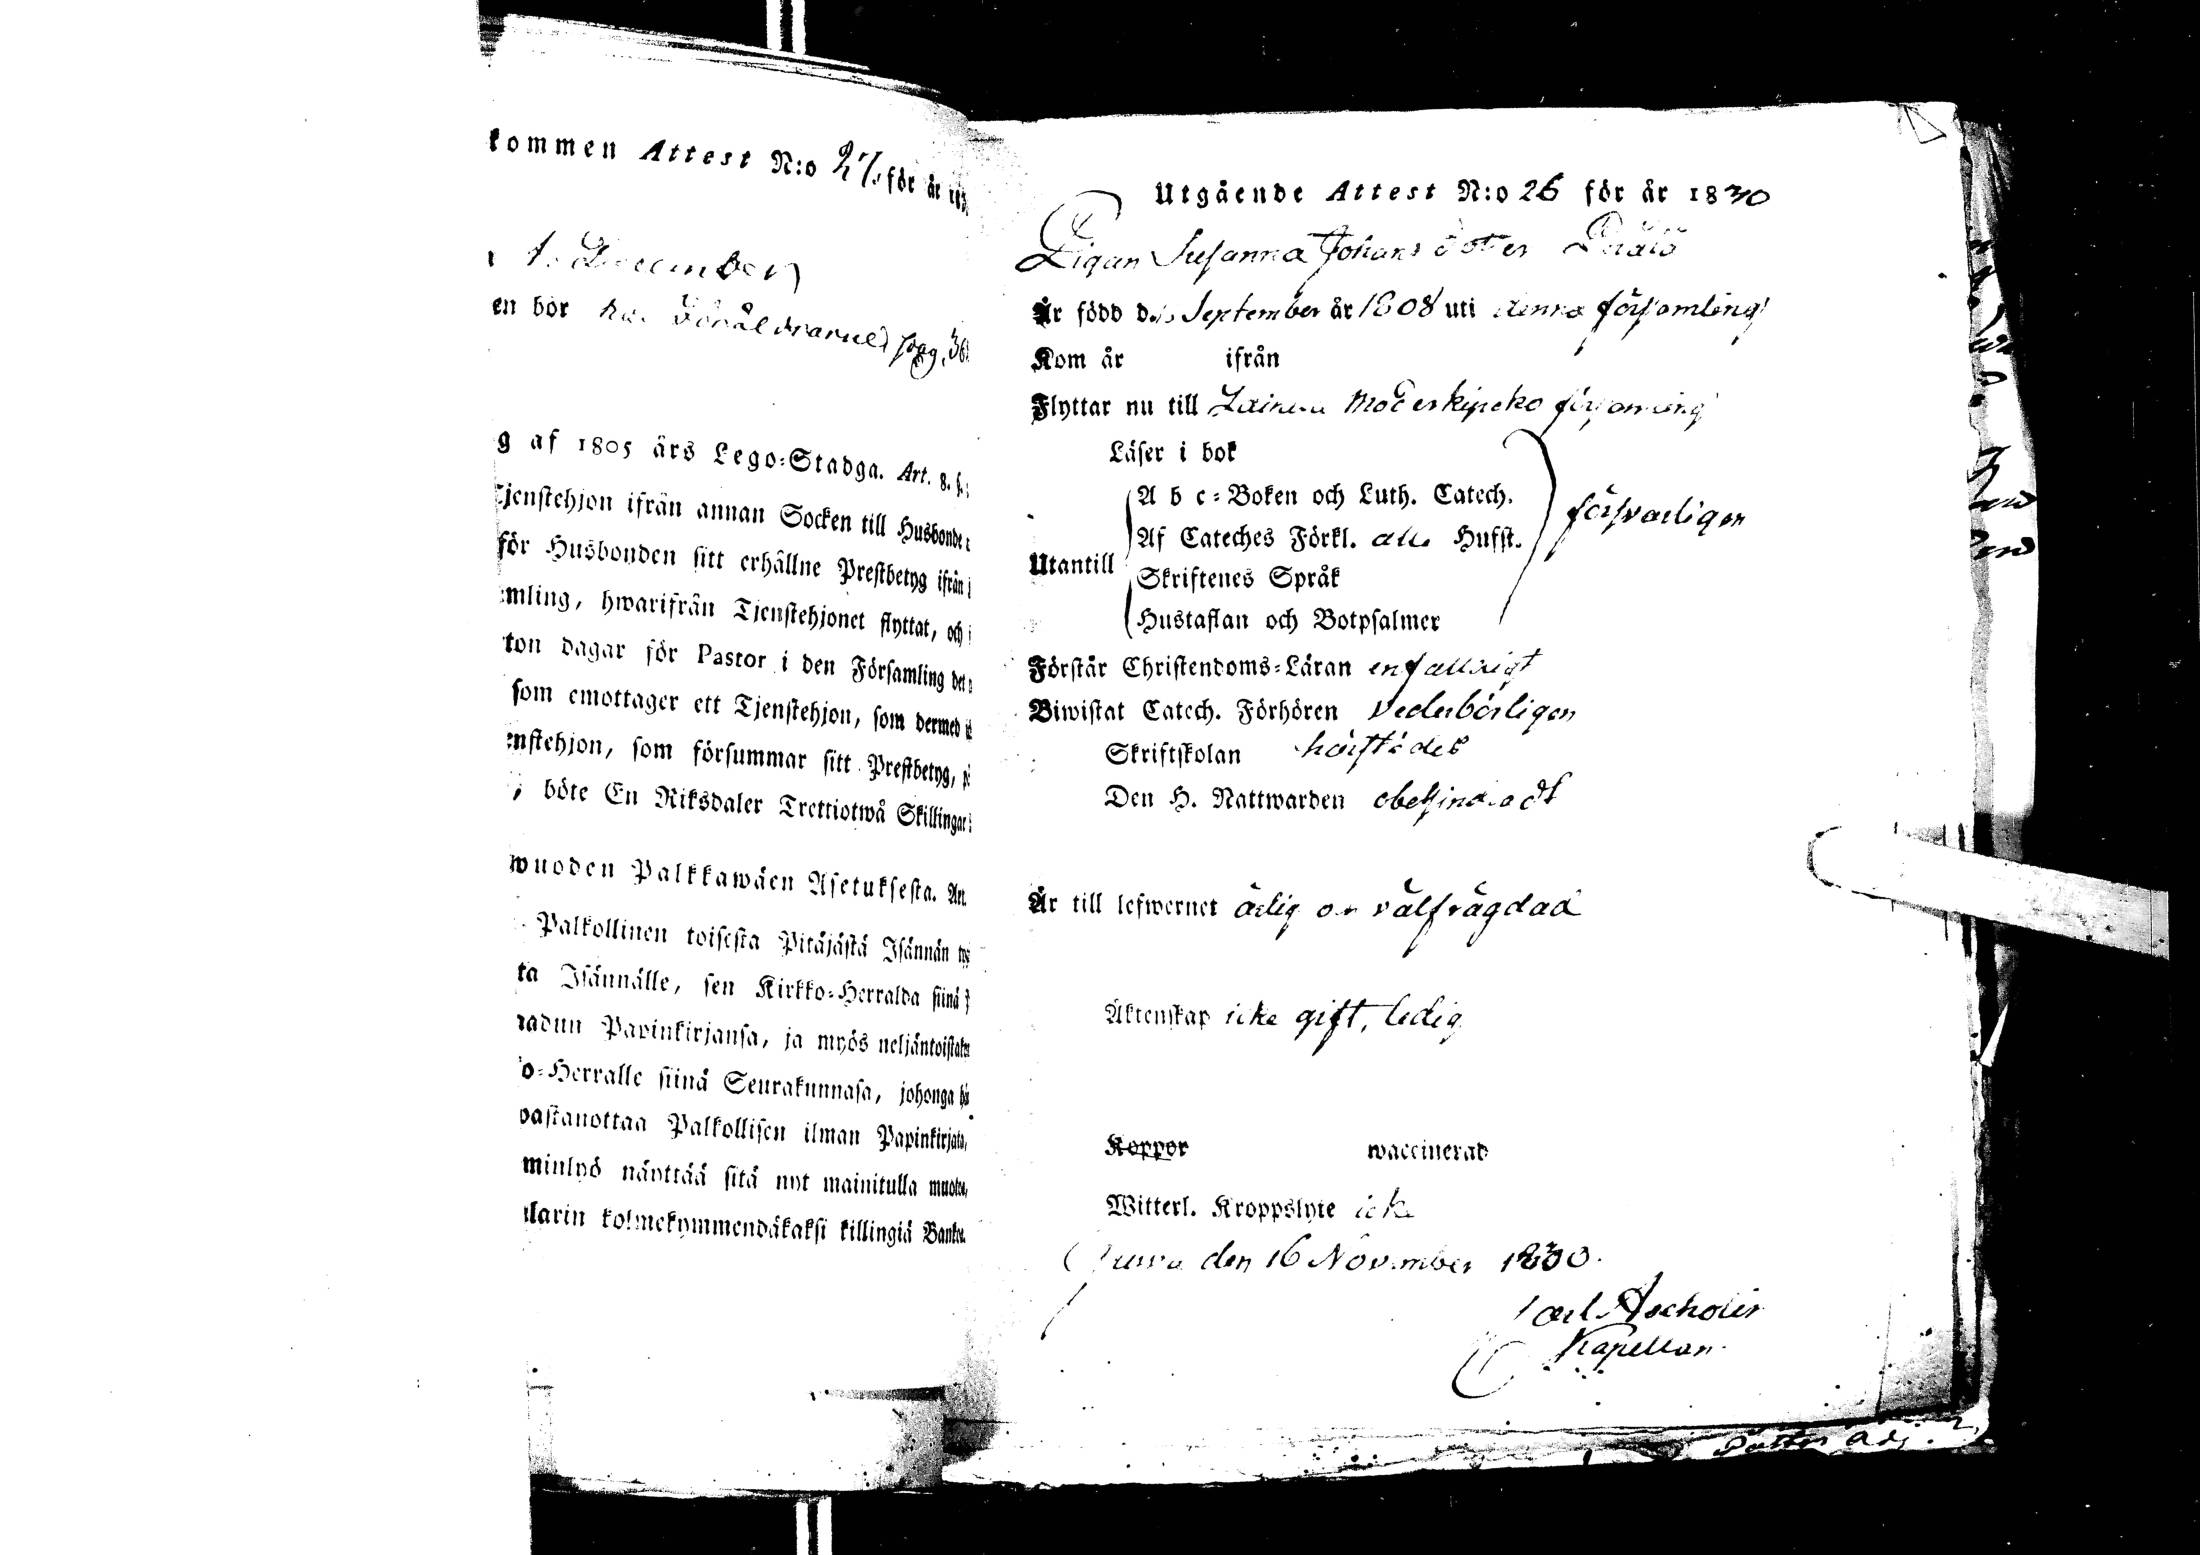 kommen Attest N:o 27. för år 183
1. December
en bor hos Föräldrarne pag. 36
g af 1805 års Lego-Stadga. Art. 8. §.
Tjenstehjon ifrån annan Socken till Husbonde
för Husbonden sitt erhållne Prestbetyg ifrån
mling, hwarifrån Tjenstehjonet flyttat, och
ton dagar för Pastor i den Församling det
som emottager ett Tjenstehjon, som dermed
enstehjon, som försummar sitt Prestbetyg,
, böte En Riksdaler Trettiotwå Skillingar
wuoden Palkkawäen Asetuksesta. Art.
Palkollinen toisesta Pitäjästä Isännän
ta Isännälle, sen Kirkko-Herralda siinä
radun Papinkirjansa, ja myös neljäntoista
o-Herralle siinä Seurakunnasa, johonga
vastanottaa Palkollisen ilman Papinkirjata,
minlyö näyttää sitä nyt mainitulla
llarin kolmekymmendäkaksi killingiä Banko.
Utgående Attest N:o 26 för år 1830
Pigan Susanna Johansdotter
Är född d. September år 1808 uti denna församling
Kom år ifrån
Flyttar nu till Moderkyrko församling
Läser i bok
A b c-Boken och Luth. Catech.
Af Cateches Förkl. alla Husst.
försvarligen
Utantill
Skriftenes Språk
Hustaflan och Botpsalmer
Förstår Christendoms-Läran enfalldigt
Biwistat Catech. Förhören vederbörligen
Skriftskolan härstädes
Den H. Nattwarden obehindradt
Är till lefwernet ärlig o. välfrägdad
Äktenskap icke gift, ledig
Koppor waccinerad
Witterl. Kroppslyte icke
den 16 November 1830.
Carl
Kapellan.